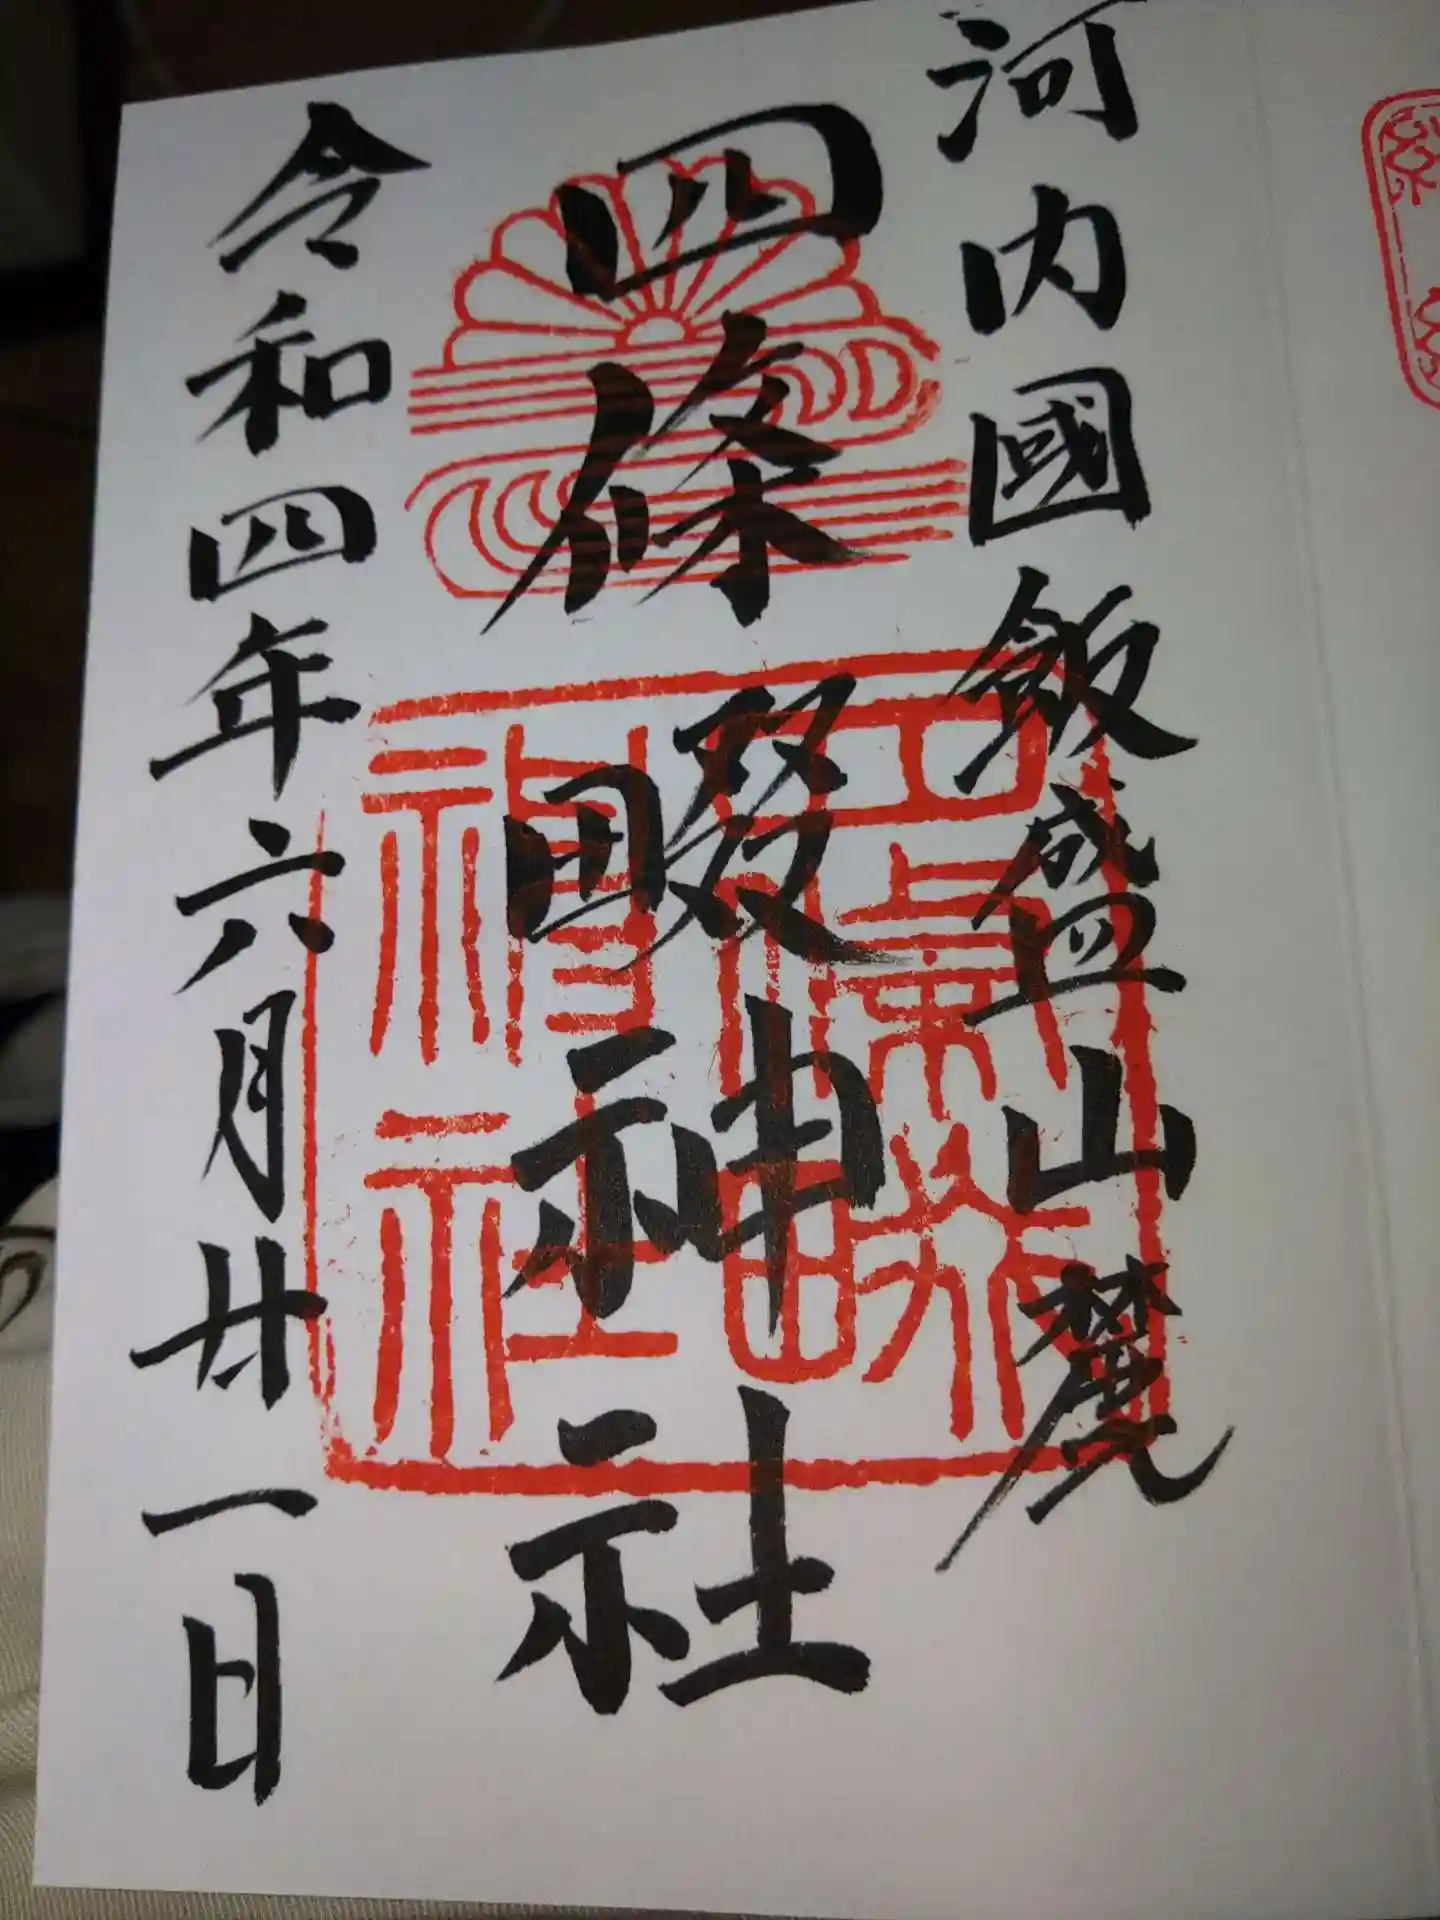 河内國飯盛山麓
四條畷神社
令和四年六月廿一日
四條畷神社